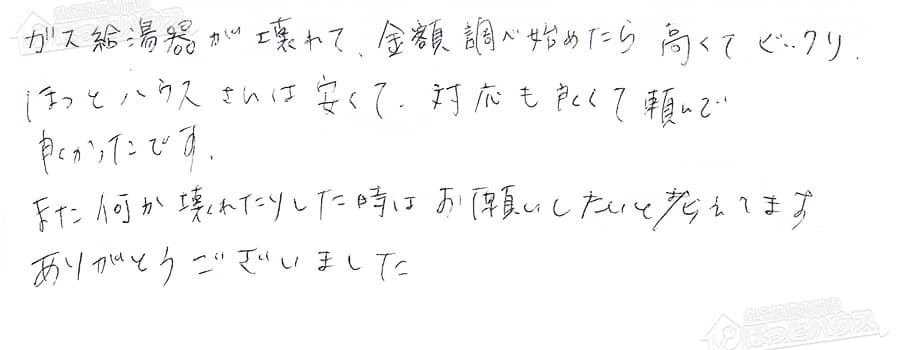 ガス給湯器が壊れて、金額調べ始めたら高くてビックリ.
ほっとハウスさんは安くて、対応も良くて頼んで
良かったです。
また何か壊れたりした時はお願いしたいと考えてます
ありがとうございました
ほっとハウス